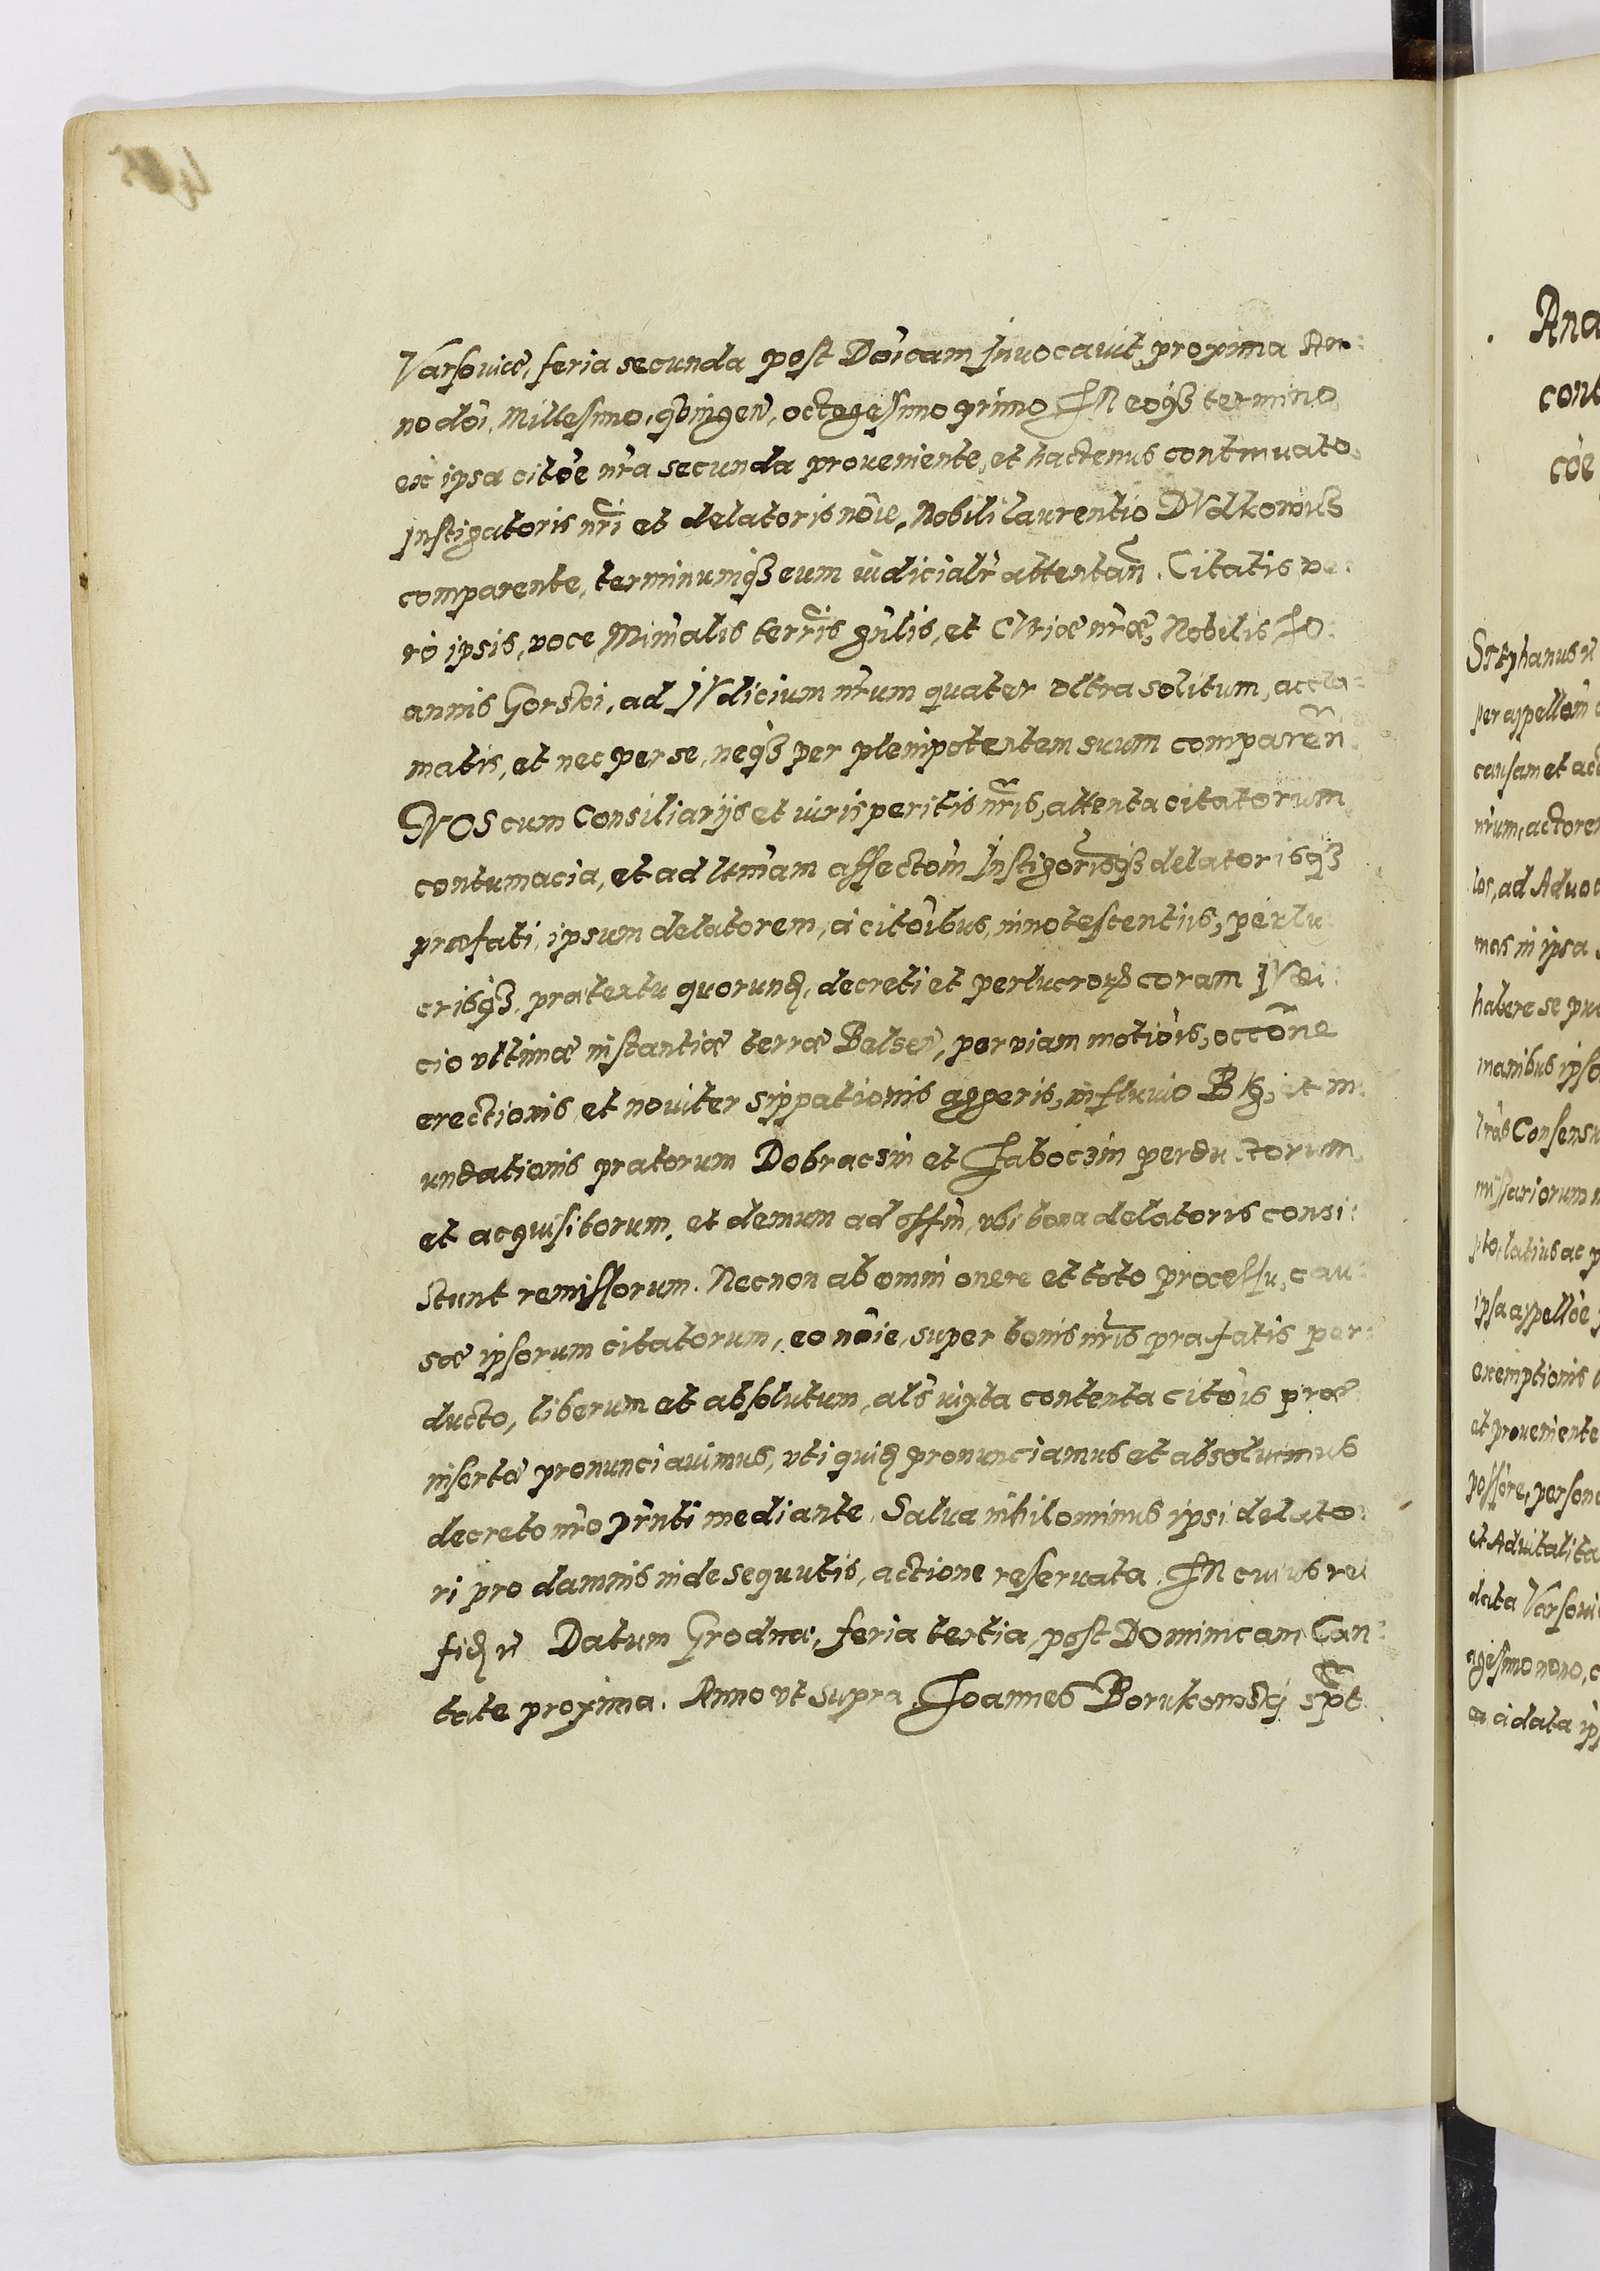 Varsouiæ, feria secunda post Dôicam Inuocauit proxima An:
no dôi, Millesimo, qbingen, octogesimo primo, IN eoq₃ termino
ex ipsa citõe nra secunda proueniente, et hactenus continuato,
Instigatoris nri et delatoris nôie, Nobili Laurentio DVdkowic3
comparente, terminumq₃ eum iudicialr attentan. Citatis ve:
ro ipsis, voce Minralis terris gnlis, et CVriæ nræ, Nobilis IO:
annis Gorski, ad IVdicium nrum quater vltra solitum, accla:
matis, et nec per se, neq₃ per plenipotentem suum comparen.
NOS cum Consiliarijs et iurisperitis nris, attenta citatorum
contumacia, et ad ltimam affectõm Instigorisq₃ delatorisq₃
præfati, ipsum delatorem, à citõibus, innotescentijs, perlu:
crisq₃, prætextu quorund, decreti et perlucror coram IVdi:
cio vltimæ instantiæ terræ Belsen, per viam motiõis, occõne
erectionis et nouiter sippationis aggeris, in fluuio BVg, et in:
undationis pratorum Dobraczin et Iaboczin perductorum
et acquisitorum, et demum ad offm, vbi bona delatoris consi:
stunt remissorum. Necnon ab omni onere et toto processu, cau:
sæ ipsorum citatorum, eo nôie, super bonis nris præfatis per:
ducto, liberum et absolutum, als iuxta contenta citõis præ
insertæ pronunciauimus, vti quid pronunciamus et absoluimus
decreto nro prnti mediante. Salua nihilominus ipsi delato:
ri pro damnis inde sequutis, actione reseruata. IN cuius rei
fid rc Datum Grodnæ, feria tertia, post Dominicam Can:
tate proxima. Anno vt supra Ioannes Borukowskj spt
Ana
cont
cõe
Stephanus rc
per appellõm
causam et ac
nrum, actore
los, ad Aduoc
mas in ipsa
habere se pu
manibus ipso
lrãs Consensu
missariorum
latius ac p
ipsa appellõe
exemptionis
et proueniente
possore, person
et Aduitalita
data Varsoui
gesimo nono,
à data ip